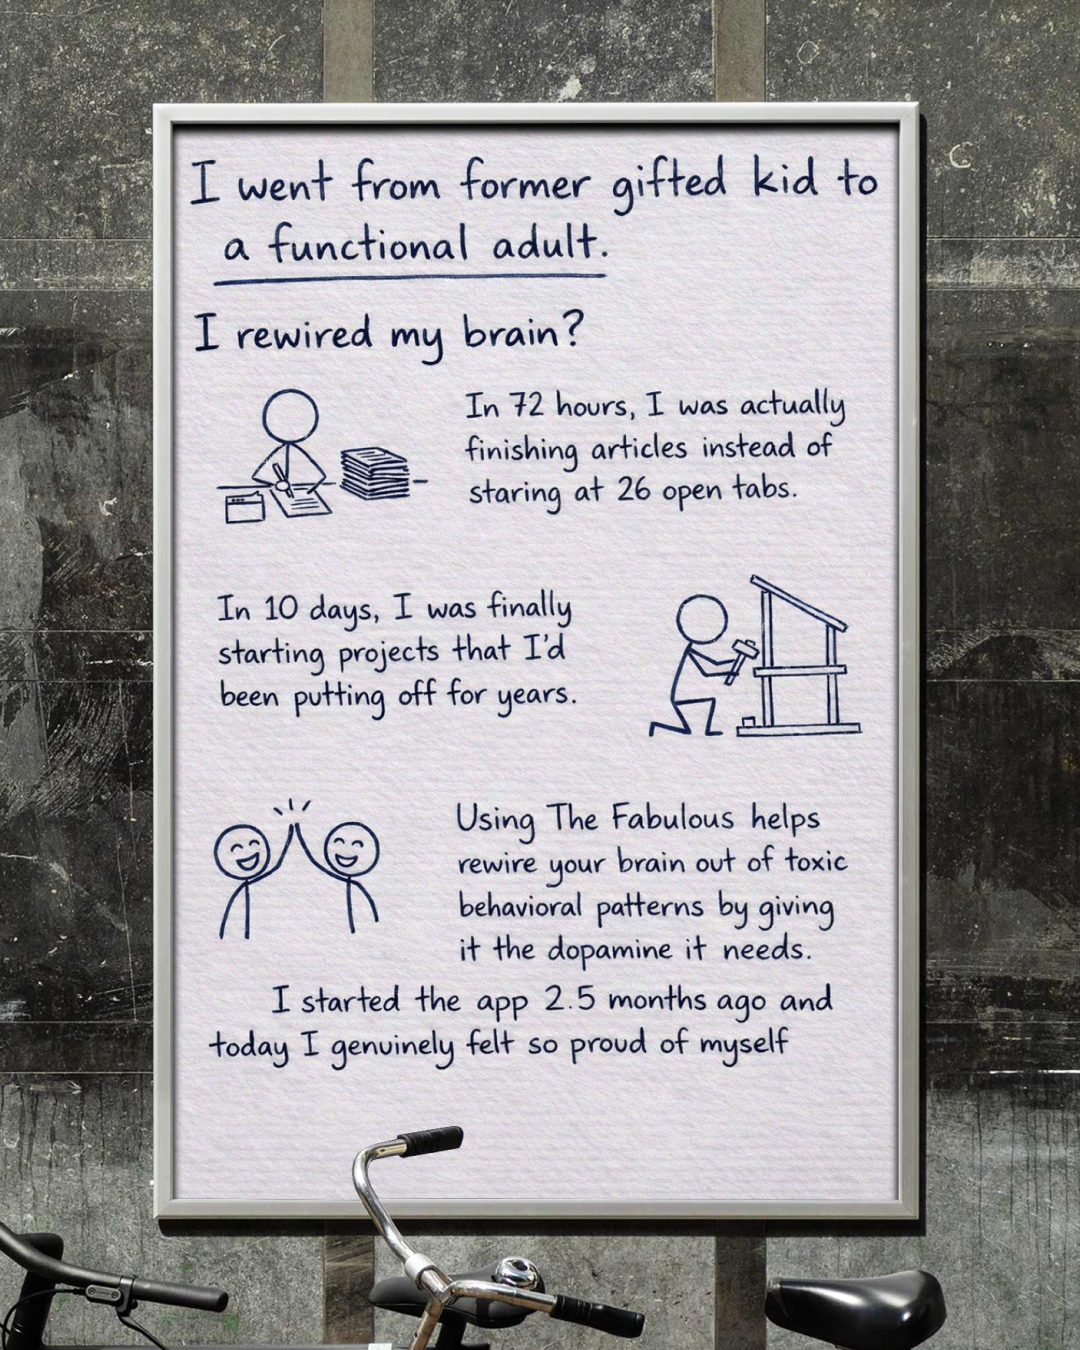 I went from former gifted kid to
a functional adult.
I rewired my brain?
In 72 hours, I was actually
finishing articles instead of
staring at 26 open tabs.
In 10 days, I was finally
starting projects that I'd
been putting off for years.
Using The Fabulous helps
rewire your brain out of toxic
behavioral patterns by giving
it the dopamine it needs.
I started the app 2.5 months ago and
today I genuinely felt so proud of myself